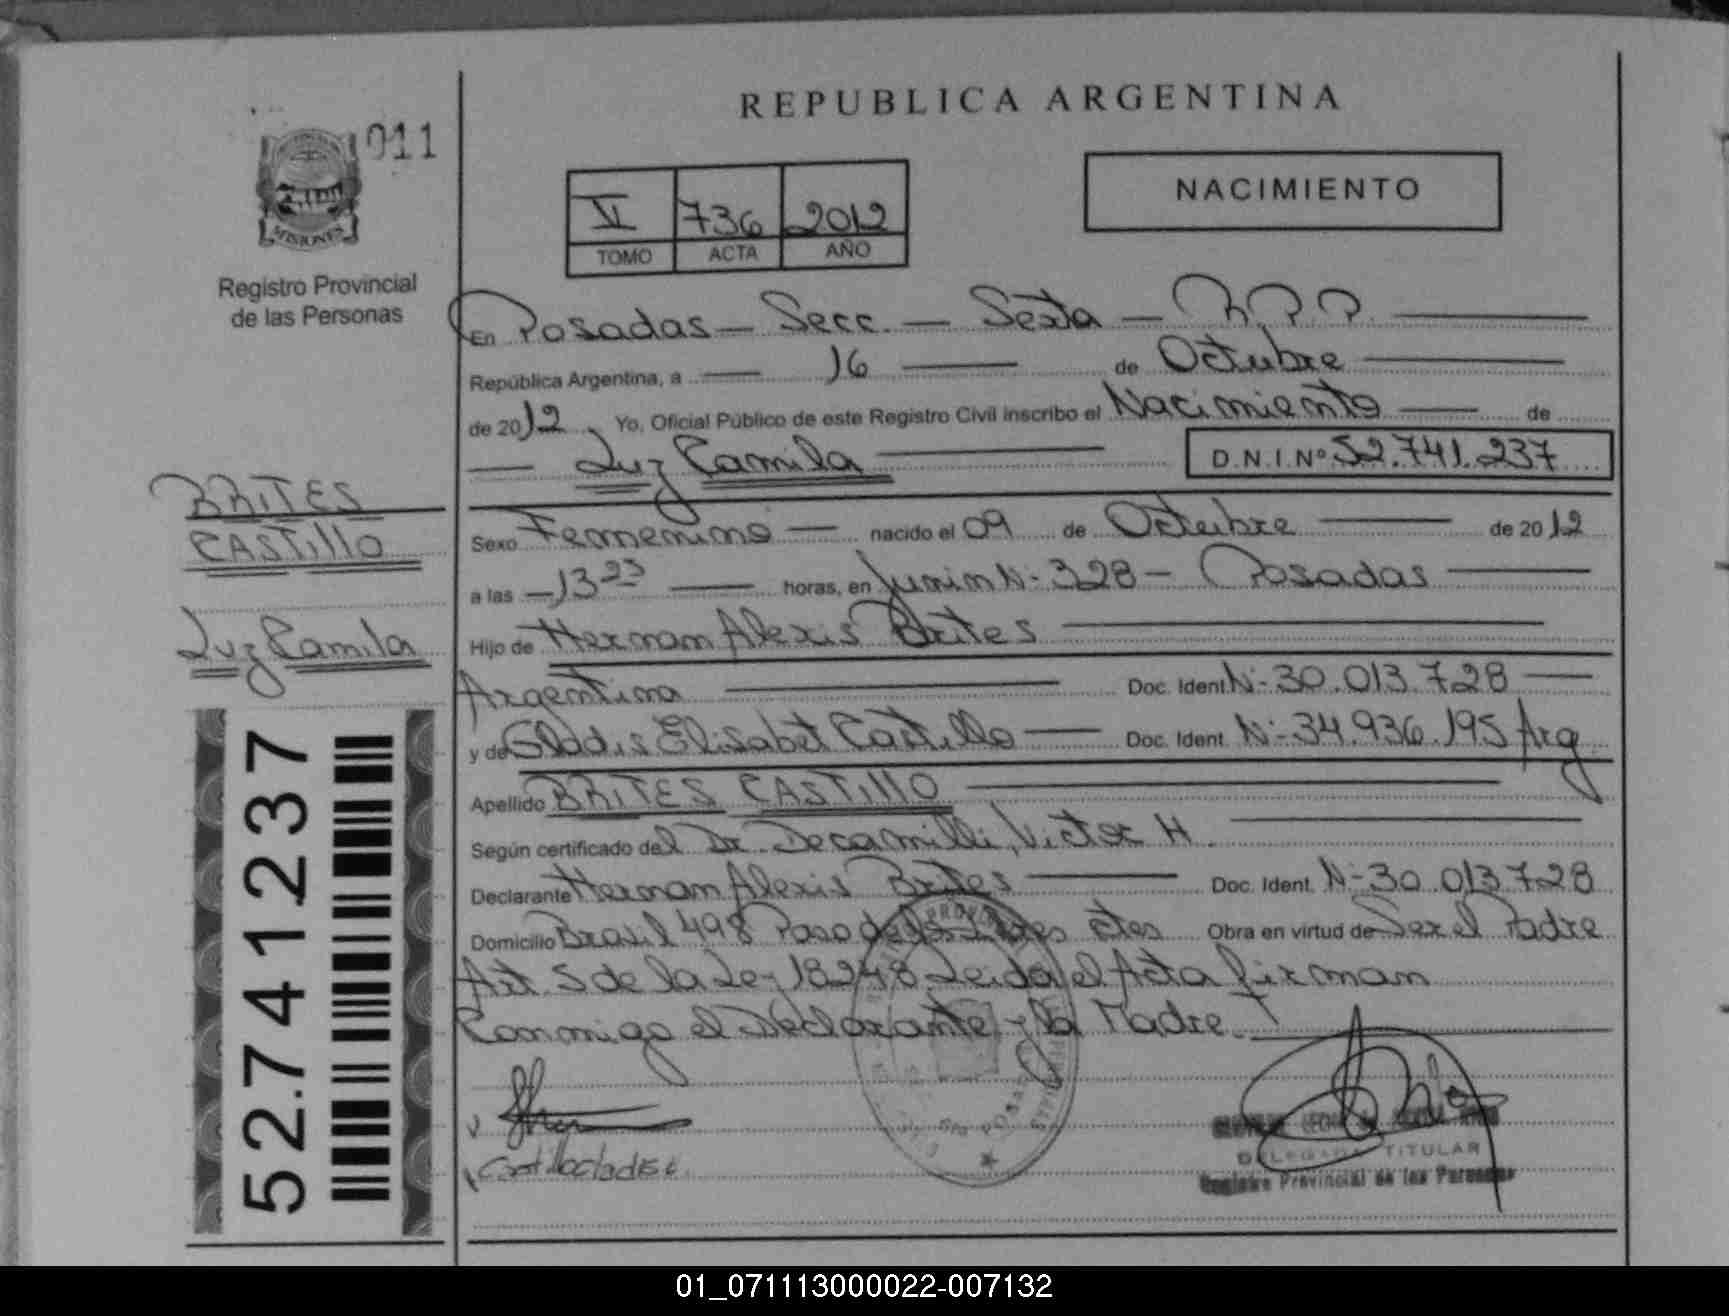 011
MISIONES
Registro Provincial
de las Personas
REPUBLICA ARGENTINA
VI 736 2012
TOMO ACTA AÑO
NACIMIENTO
En Posadas - Secc. - Sexta - R.P.P.
República Argentina, a 16 de Octubre
de 2012 Yo, Oficial Público de este Registro Civil inscribo el Nacimiento de
Luz Camila D.N.I.Nº 52.741.237
BRITES
CASTILLO
Luz Camila
52.741.237
Sexo Femenino nacido el 09 de Octubre de 2012
a las 13 23 horas, en Junin Nº 328 - Posadas
Hijo de Hernan Alexis Brites
Argentino Doc. Ident. Nº 30.013.728
y de Gladis Elisabet Castillo Doc. Ident. Nº 34.936.195 Arg
Apellido BRITES CASTILLO
Según certificado del Dr. Decamilli, Victor H.
Declarante Hernan Alexis Brites Doc. Ident. Nº 30.013.728
Domicilio Brasil 498 Paso de los Libres Ctes Obra en virtud de Ser el Padre
Art. 5 de la Ley 18248. Leida el Acta firman
Conmigo el Declarante y la Madre.
DELEGADA TITULAR
Registro Provincial de las Personas
01_071113000022-007132